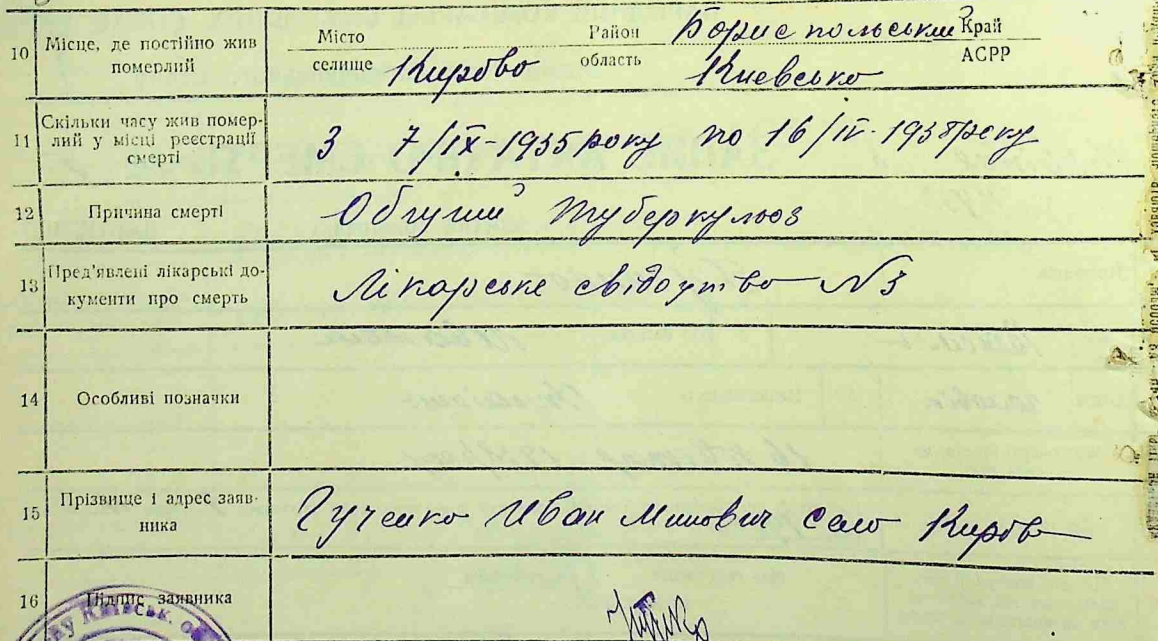 10 Місце, де постійно жив померлий Місто Район Бориспольський Край
селище Кирово область Киевсько АСРР
11 Скільки часу жив помер-
лий у місці реєстрації
смерті
З 7/ІХ-1935 року по 16/IV-1938 року
12 Причина смерті туберкульоз
13 Пред'явлені лікарські до-
кументи про смерть
Лікарське свідоцтво №3
14 Особливі позначки
15 Прізвище і адрес заяв-
ника
Гученко Иван село Кирово
16 Підпис заявника